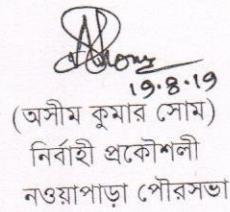 19.8.19
(অসীম কুমার সোম)
নির্বাহী প্রকৌশলী
নওয়াপাড়া পৌরসভা